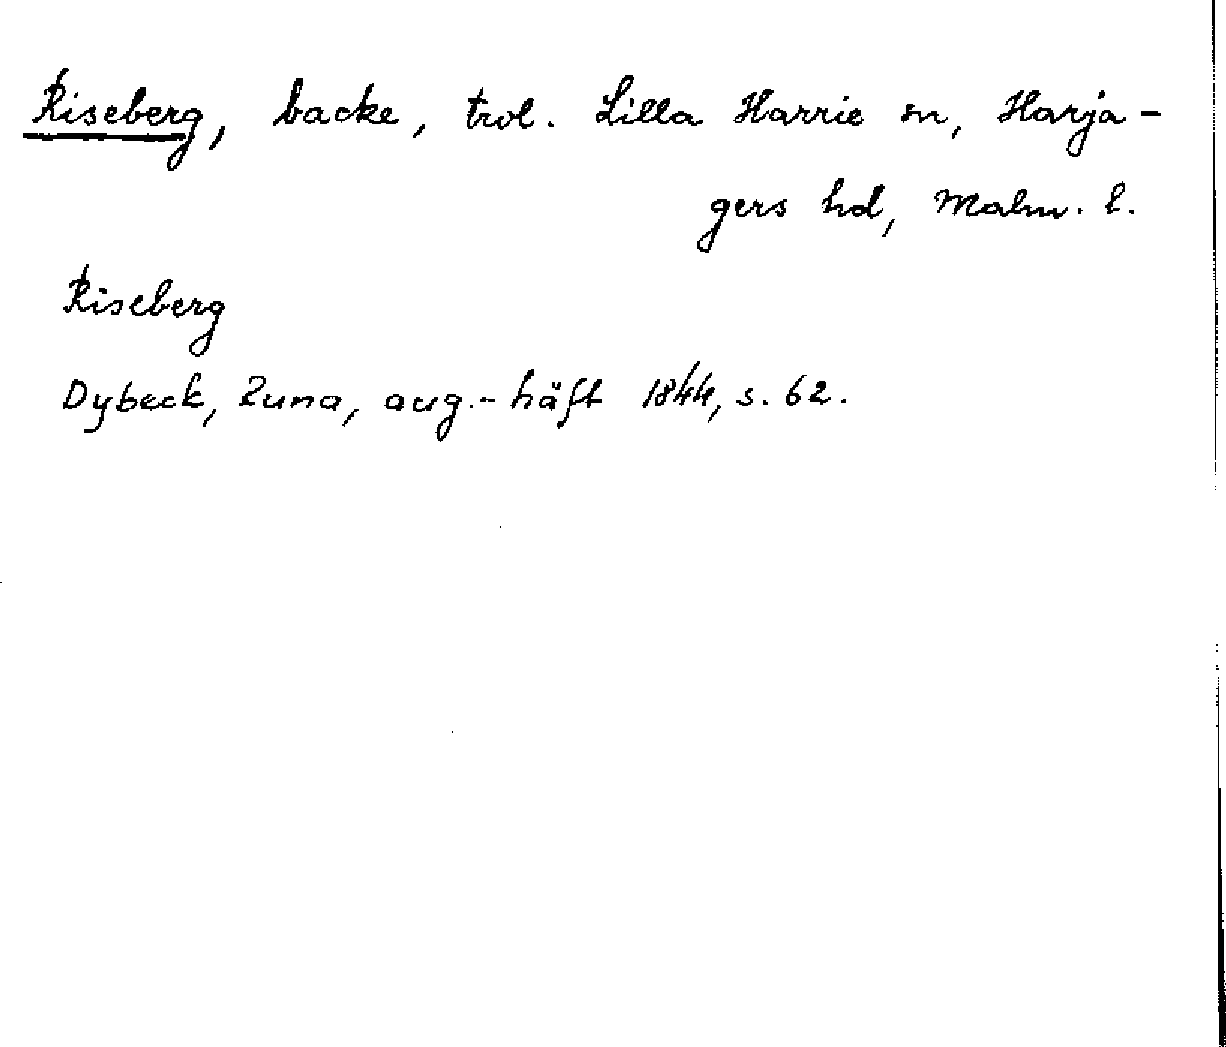 Riseberg, backe, trol. Lilla Harrie sn, Harja-
gers hd, Malm. l.
Riseberg
Dybeck, Runa, aug.-häft 1844, s. 62.